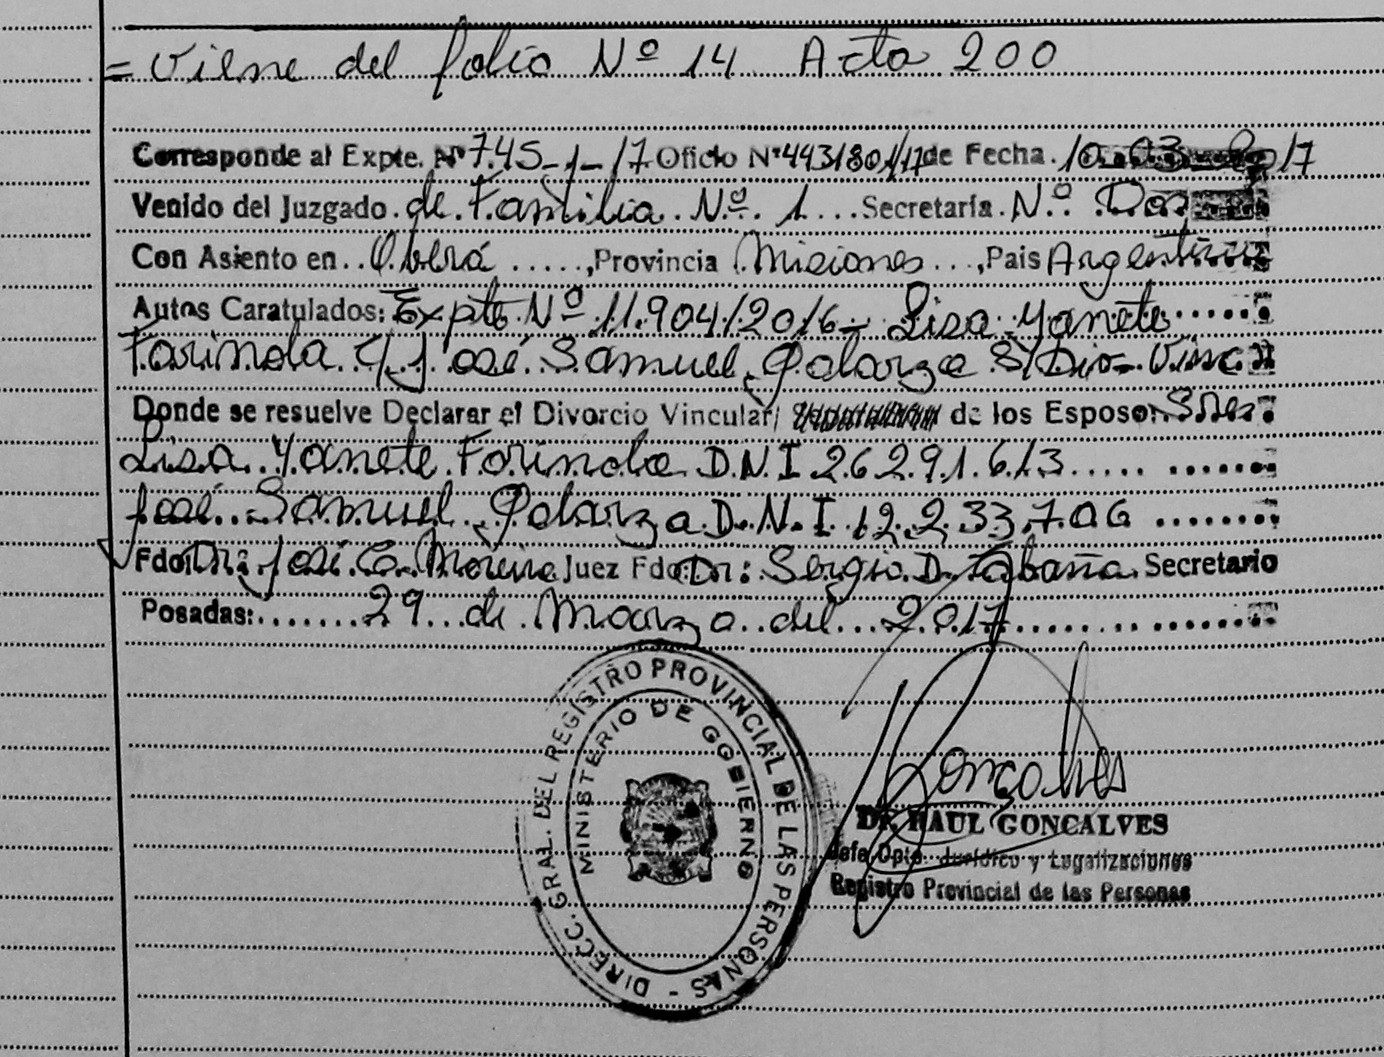 = Viene del folio Nº 14 Acta 200
Corresponde al Expte. Nº 745-1-17 Oficio Nº 443180/17 de Fecha. 10-03-2017
Venido del Juzgado de Familia Nº 1 ... Secretaría. Nº Dos
Con Asiento en .. Oberá ....., Provincia Misiones ..., Pais Argentina
Autos Caratulados: Expte Nº 11.904/2016 - Lisa Yanete
Farinola C/ José Samuel Galarza S/ Div- Vinc
Donde se resuelve Declarar el Divorcio Vincular/ de los Esposos. Sres.
Lisa Yanete Farinola D.N.I 26.291.613
José Samuel Galarza D.N.I 12.233.706
Fdo Dr: José G. Moreira Juez Fdo Dr: Sergio D. Secretario
Posadas: 29 de Marzo del 2017
DIRECC. GRAL. DEL REGISTRO PROVINCIAL DE LAS PERSONAS -
MINISTERIO DE GOBIERNO
Goncalves
Dr. RAUL GONCALVES
Jefe Dpto. Jurídico y Legalizaciones
Registro Provincial de las Personas